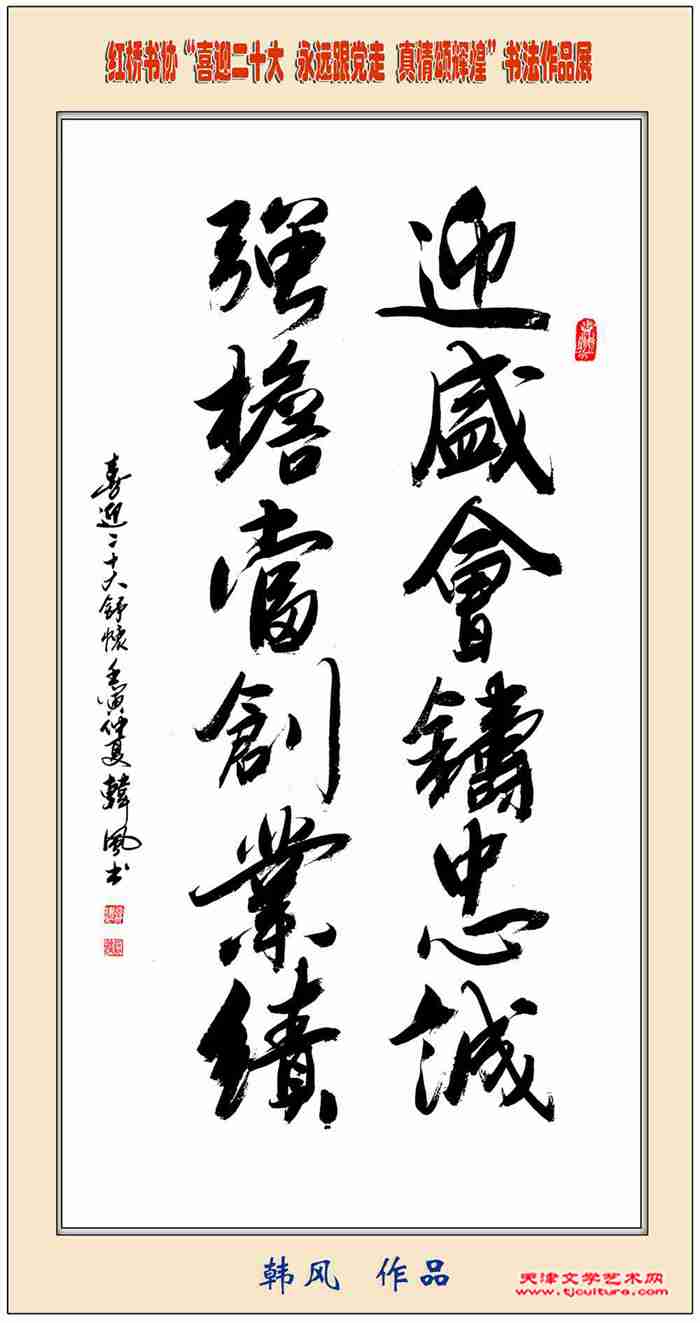 红桥书协“喜迎二十大 永远跟党走 真情颂辉煌”书法作品展
迎盛會鑄忠誠
强擔當創業績
喜迎二十大舒懷 壬寅仲夏 韓風书
韩风 作品
天津文学艺术网
www.tjculture.com